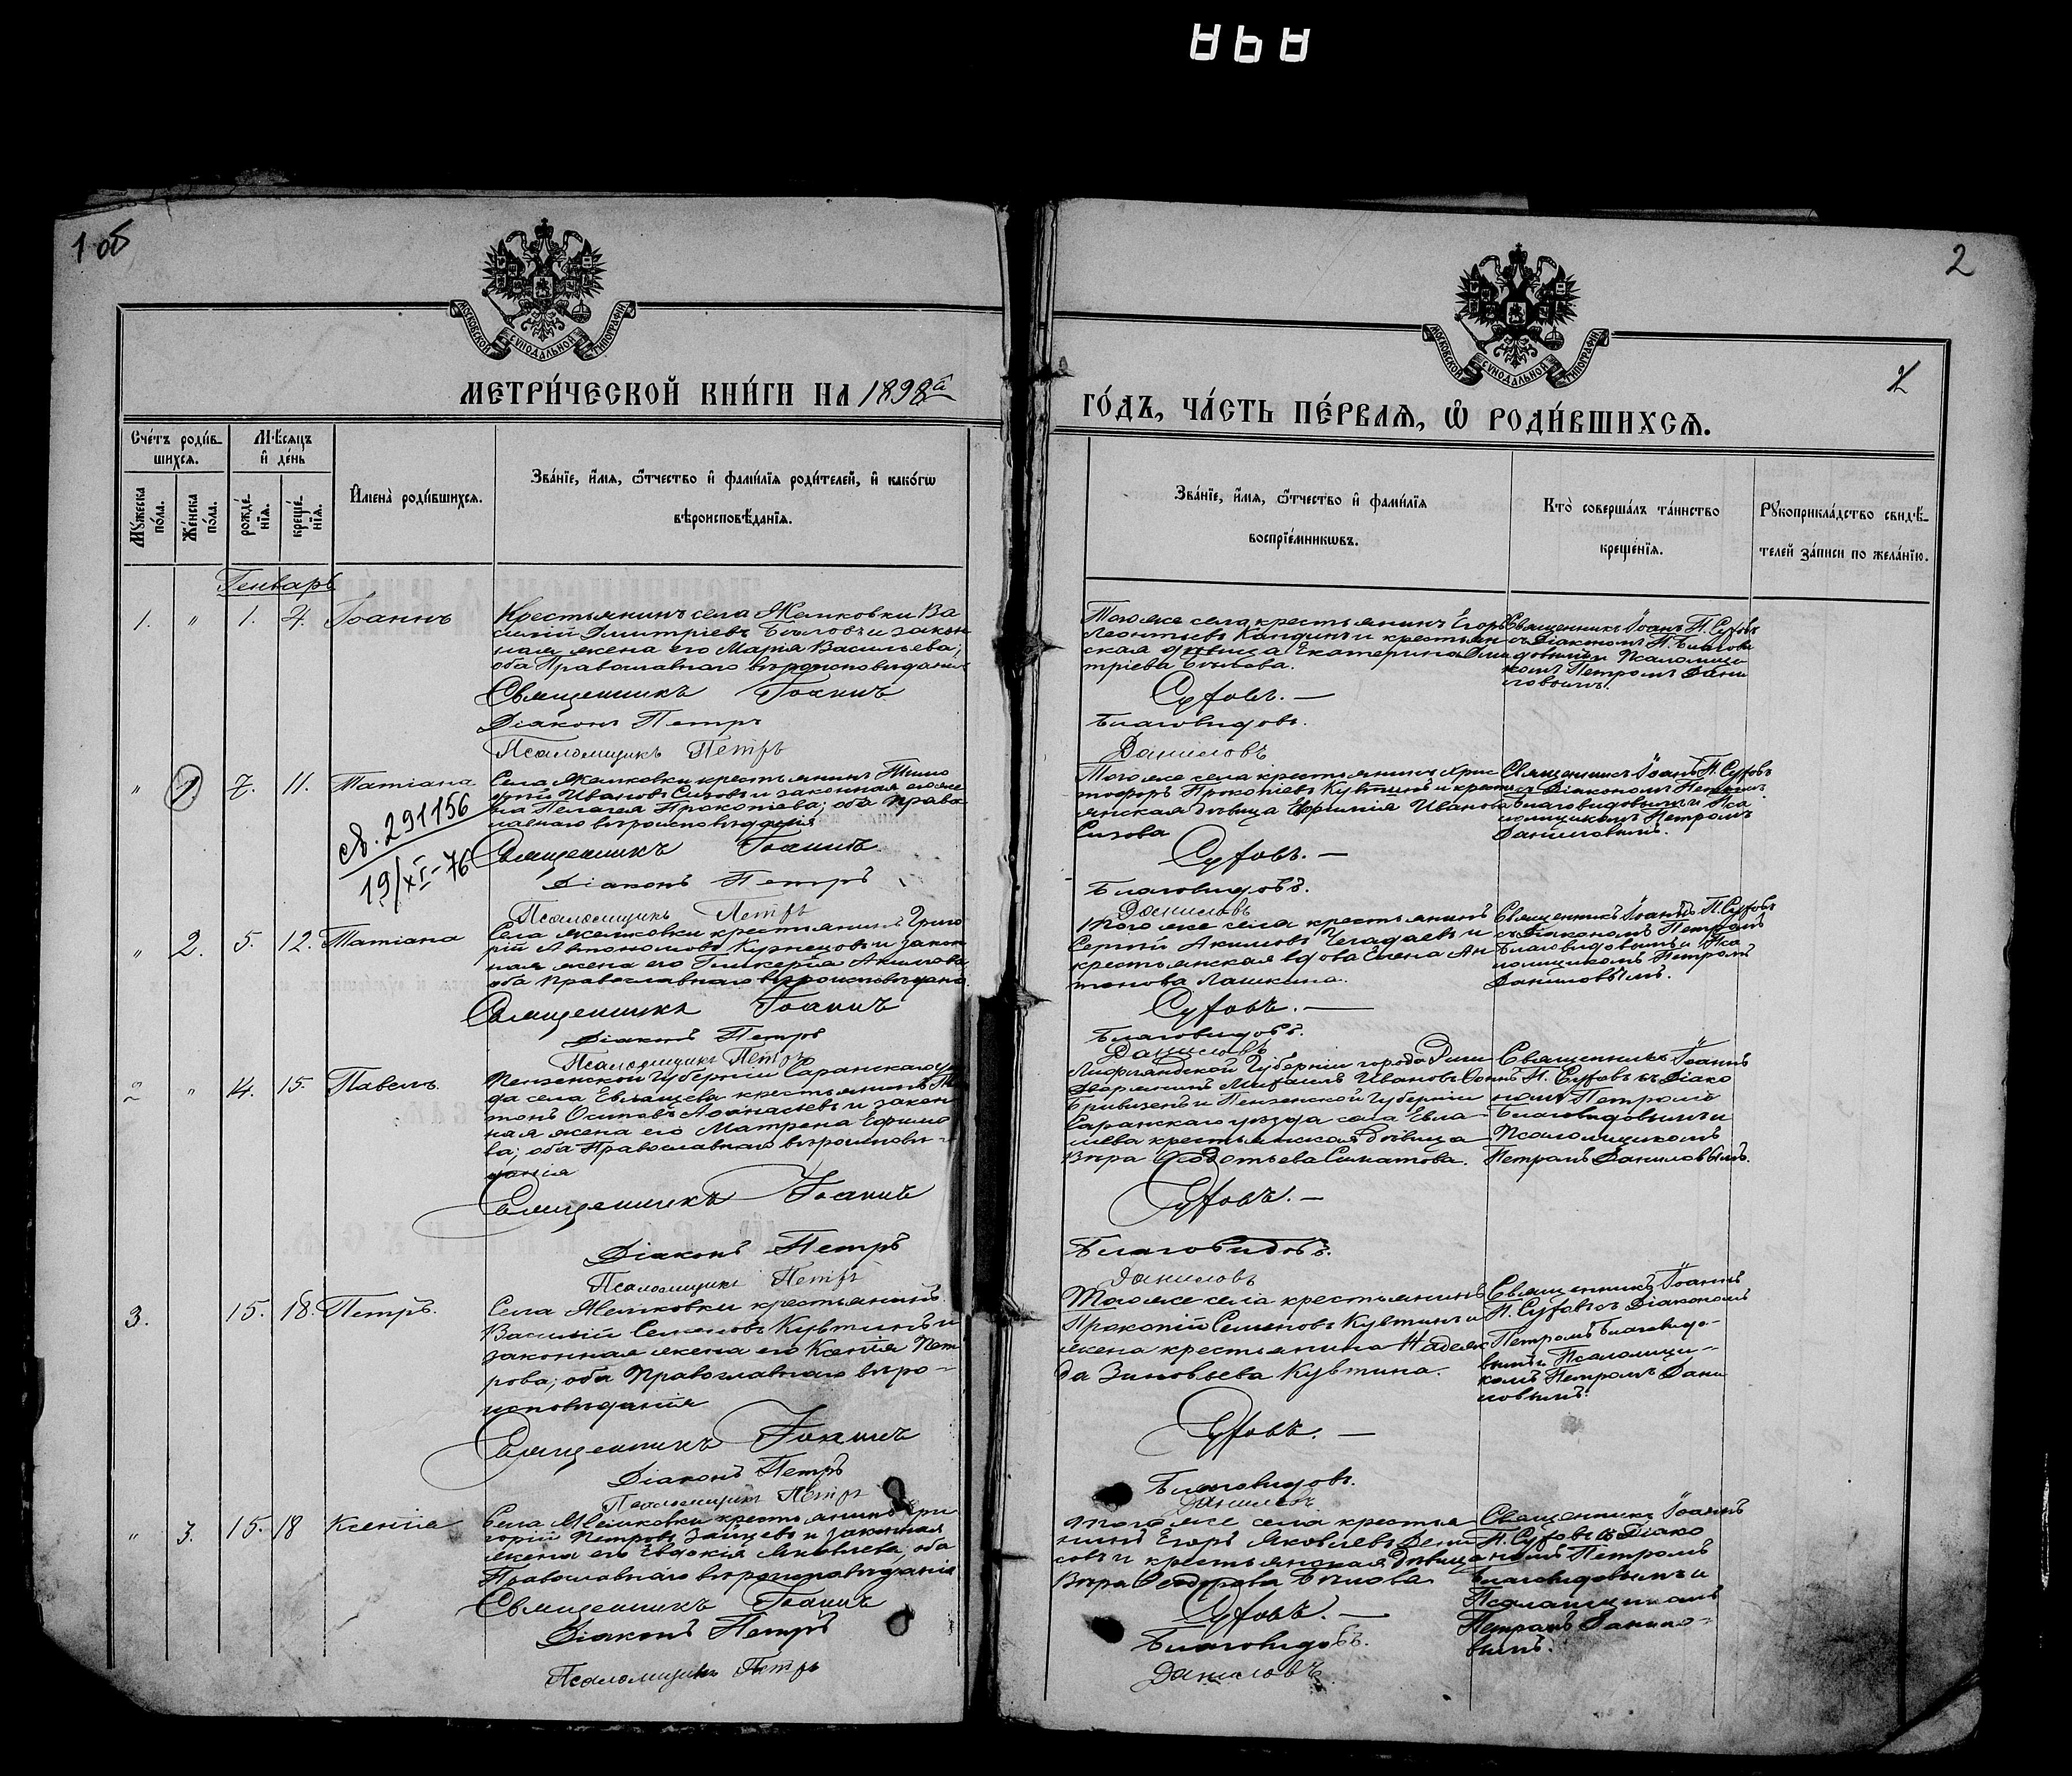 1 об
2
МОСКОВСКОЙ СУНОДАЛЬНОЙ ТИПОГРАФІИ.
МОСКОВСКОЙ СУНОДАЛЬНОЙ ТИПОГРАФІИ.
МЕТРИ́ЧЕСКОЙ КНИ́ГИ НА 1898й
ГО́ДЪ, ЧА́СТЬ ПЕ́РВАЯ, Ѡ РОДИ́ВШИХСЯ.
2
Сче́тъ роди́в-
шихся.
Мѣ́сяцъ
и де́нь
Му́жеска по́ла.
Же́нска по́ла.
рожде́нїя.
креще́нїя.
И҆мена̀ роди́вшихся.
Зва́нїе, и҆́мя, ѻ҆́тчество и҆ фами́лїя роди́телей, и҆ како́гѡ
вѣроисповѣ́данїя.
Зва́нїе, и҆́мя, ѻ҆́тчество и҆ фами́лїя
воспрїе́мникѡвъ.
Кто̀ соверша́лъ та́инство
креще́нїя.
Рукоприкла́дство свидѣ́-
телей за́писи по жела́нїю.
Генварь
1. " 1. 4. Іоаннъ
Крестьянинъ села Жемковки Ва
силій Димитріевъ Бѣловъ и закон
ная жена его Марія Васильева,
оба Православнаго вѣроисповѣданія
Священникъ Іоаннъ
Діаконъ Петръ
Псаломщикъ Петръ
Того же села крестьянинъ Егоръ
Леонтьевъ Кандинъ и крестьян
ская дѣвица Екатерина Дими
тріева Бѣлова.
Суховъ. —
Благовидовъ.
Даниловъ
Священникъ Іоаннъ П. Суховъ
съ Діакономъ П. Благови
довымъ и Псаломщи
комъ Петромъ Дани
ловымъ.
" 1 7. 11. Татіана
№. 291156
19/XI-76
Села Жемковки крестьянинъ Тимо
ѳей Ивановъ Сизовъ и законная его же
на Пелагея Прокопіева; оба Право
славнаго вѣроисповѣданія
Священникъ Іоаннъ
Діаконъ Петръ
Псаломщикъ Петръ
Того же села крестьянинъ Хрис
тофоръ Прокопіевъ Кувтинъ и кресть
янская дѣвица Евфимія Иванова
Сизова
Суховъ. —
Благовидовъ.
Даниловъ
Священникъ Іоаннъ П. Суховъ
съ Діакономъ Петромъ
Благовидовымъ и Пса
ломщикомъ Петромъ
Даниловымъ.
" 2. 5. 12. Татіана
Села Жемковки крестьянинъ Григо
рій Автономовъ Кузнецовъ и закон
ная жена его Гликерія Акимова
оба православнаго вѣроисповѣдан.
Священникъ Іоаннъ
Діаконъ Петръ
Псаломщикъ Петръ
Того же села крестьянинъ
Сергѣй Акимовъ Чегадаевъ и
крестьянская вдова Елена Ан
тонова Лашкина.
Суховъ. —
Благовидовъ.
Даниловъ
Священникъ Іоаннъ П. Суховъ
съ Діакономъ Петромъ
Благовидовымъ и Пса
ломщикомъ Петромъ
Даниловымъ.
2 " 14. 15. Павелъ.
Пензенской Губерніи Саранскаго уѣ
да села Евлашева крестьянинъ
Осиповъ Аѳанасьевъ и закон
ная жена его Матрена Ефимо
ва; оба Православнаго вѣроисповѣ-
данія
Священникъ Іоаннъ
Діаконъ Петръ
Псаломщикъ Петръ
Лифляндской Губерніи города Риги
Дворянинъ Михаилъ Ивановъ
и Пензенской Губерніи
Саранскаго уѣзда села Евла-
шева крестьянская дѣвица
Вѣра Ѳедотьева
Суховъ. —
Благовидовъ.
Даниловъ
Священникъ Іоаннъ
П. Суховъ съ Діако
номъ Петромъ
Благовидовымъ и
Псаломщикомъ
Петромъ Даниловымъ.
3. 15. 18. Петръ.
Села Жемковки крестьянинъ
Василій Семеновъ Кувтинъ и
законная жена его Ксенія Пет
рова; оба Православнаго вѣро-
исповѣданія
Священникъ Іоаннъ
Діаконъ Петръ
Псаломщикъ Петръ
Того же села крестьянинъ
Прокопій Семеновъ Кувтинъ и
жена крестьянина Надеж
да Зиновьева Кувтина.
Суховъ. —
Благовидовъ.
Даниловъ
Священникъ Іоаннъ
П. Суховъ съ Діакономъ
Петромъ Благовидо-
вымъ и Псаломщи-
комъ Петромъ Дани
ловымъ.
" 3. 15. 18 Ксенія
Села Жемковки крестьянинъ Гри
горій Петровъ Зайцевъ и законная
жена его Евдокія Яковлева, оба
Православнаго вѣроисповѣданія
Священникъ Іоаннъ
Діаконъ Петръ
Псаломщикъ Петръ
Того же села крестья
нинъ Егоръ Яковлевъ Дени
совъ и крестьянская дѣвица
Вѣра Ѳеодорова Бѣлова
Суховъ. —
Благовидовъ.
Даниловъ
Священникъ Іоаннъ
П. Суховъ съ Діако
номъ Петромъ
Благовидовымъ и
Псаломщикомъ
Петромъ Данило-
вымъ.